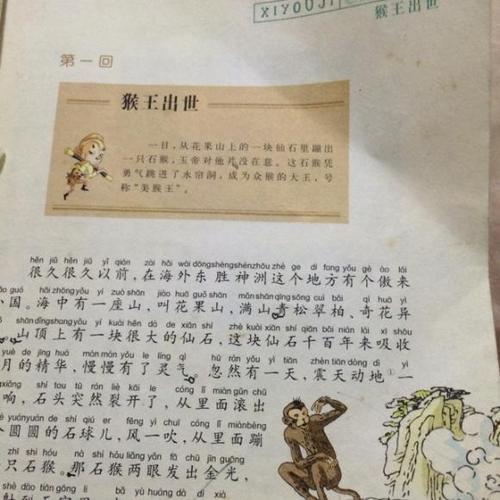 XIYOUJI
猴王出世
第一回
猴王出世
一日，从花果山上的一块仙石里蹦出
一只石猴，玉帝对他并没在意。这石猴凭
勇气跳进了水帘洞，成为众猴的大王，号
称“美猴王”。
hěn jiǔ hěn jiǔ yǐ qián zài hǎi wài dōngshèngshénzhōu zhè ge dì fang yǒu gè ào lái
很久很久以前，在海外东胜神洲这个地方有个傲来
guó hǎi zhōng yǒu yí zuò shān jiào huā guǒ shān mǎn shān qīng sōng cuì bǎi qí huā yì
小国。海中有一座山，叫花果山，满山青松翠柏、奇花异
shān dǐngshang yǒu yí kuài hěn dà de xiān shí zhè kuài xiān shí qiān bǎi nián lái xī shōu
山顶上有一块很大的仙石，这块仙石千百年来吸收
yuè de jīng huá màn màn yǒu le líng qì hū rán yǒu yì tiān zhèn tiān dòng dì yì
月的精华，慢慢有了灵气。忽然有一天，震天动地①一
xiǎng shí tou tū rán liè kāi le cóng lǐ miàn gǔn chū
响，石头突然裂开了，从里面滚出
yuányuán de shí qiú er fēng yì chuī cóng lǐ miànbèng
个圆圆的石球儿，风一吹，从里面蹦
zhī shí hóu nà shí hóu liǎng yǎn fā chū jīn guāng
只石猴。那石猴两眼发出金光，
bǎ yù huáng dà dì